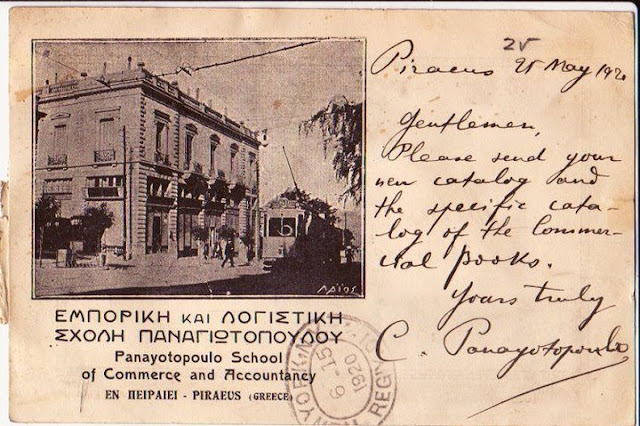 25
Piraeus 25 May 1920
Gentlemen,
Please send your
new catalog and
the specific cata-
log of the Commer-
cial books.
Yours truly
C. Panayotopoulo
ΕΜΠΟΡΙΚΗ ΚΑΙ ΛΟΓΙΣΤΙΚΗ
ΣΧΟΛΗ ΠΑΝΑΓΙΩΤΟΠΟΥΛΟΥ
Panayotopoulo School
of Commerce and Accountancy
ΕΝ ΠΕΙΡΑΙΕΙ - PIRAEUS (GREECE)
6-15
1920